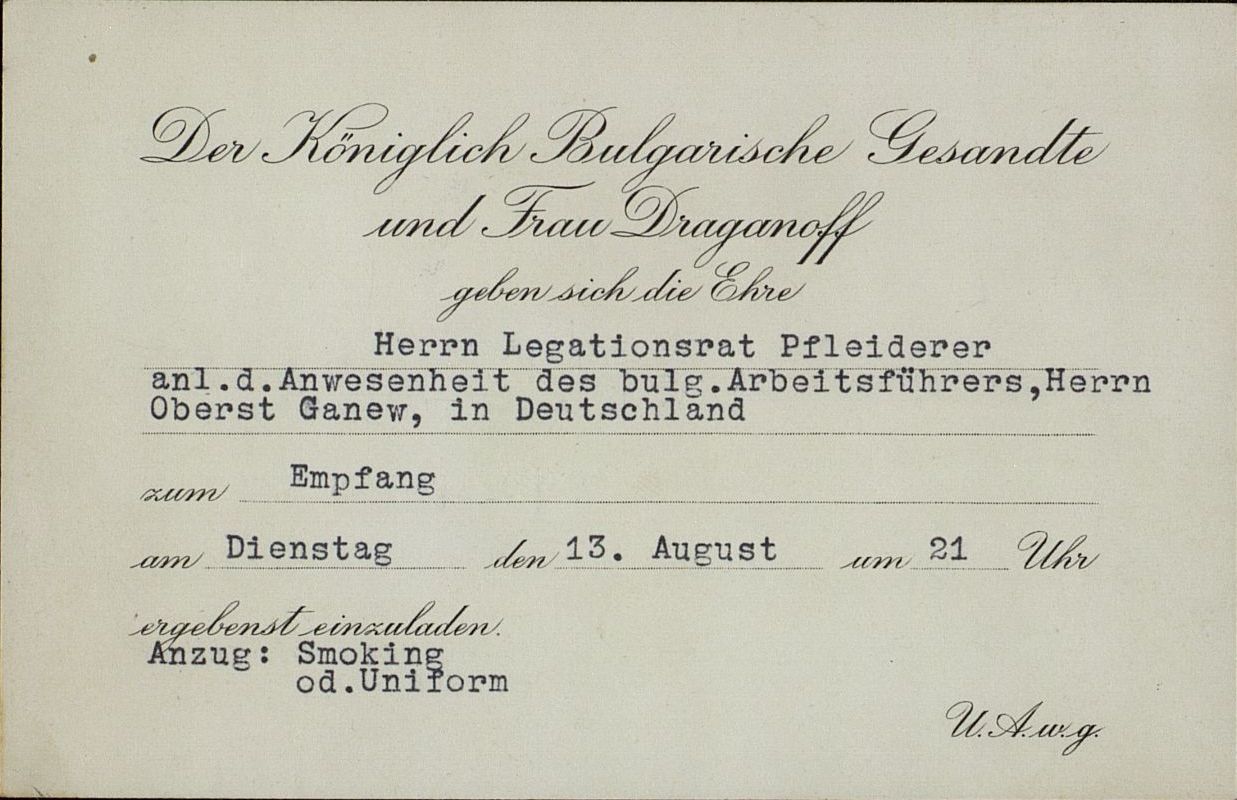 Der Königlich Bulgarische Gesandte
und Frau Draganoff
geben sich die Ehre
Herrn Legationsrat Pfleiderer
anl.d.Anwesenheit des bulg.Arbeitsführers,Herrn
Oberst Ganew, in Deutschland
zum Empfang
am Dienstag den 13. August um 21 Uhr
ergebenst einzuladen.
Anzug: Smoking
od.Uniform
U.A.w.g.